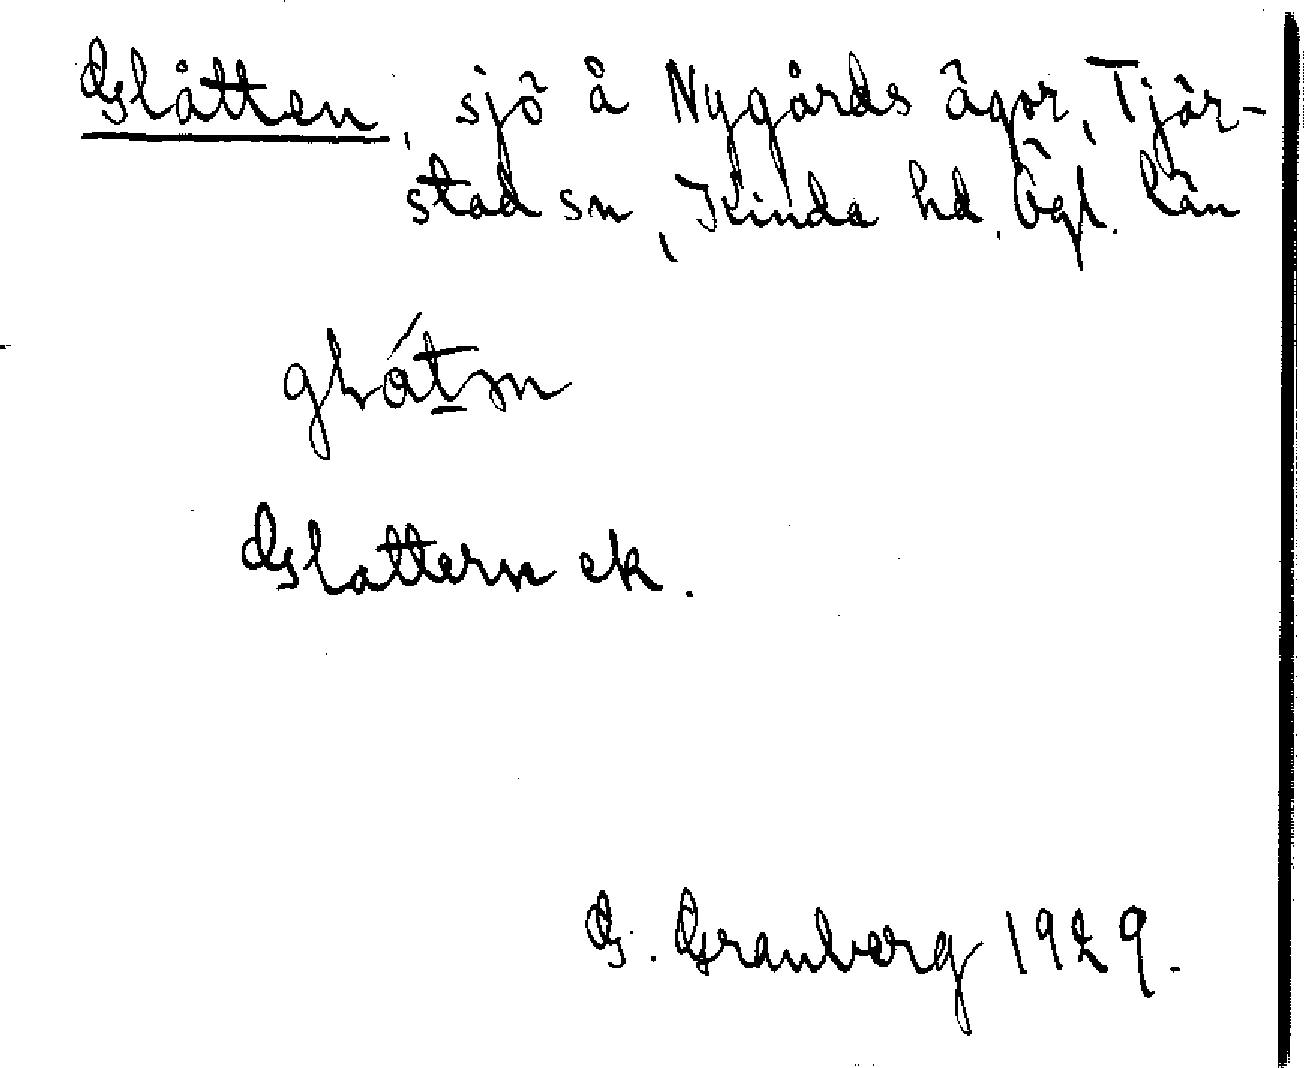 Glåtten, sjö å Nygårds ägor, Tjär-
stad sn, Kinda hd. Ögl. län
glåtn
Glattern ek.
G. Granberg 1929.